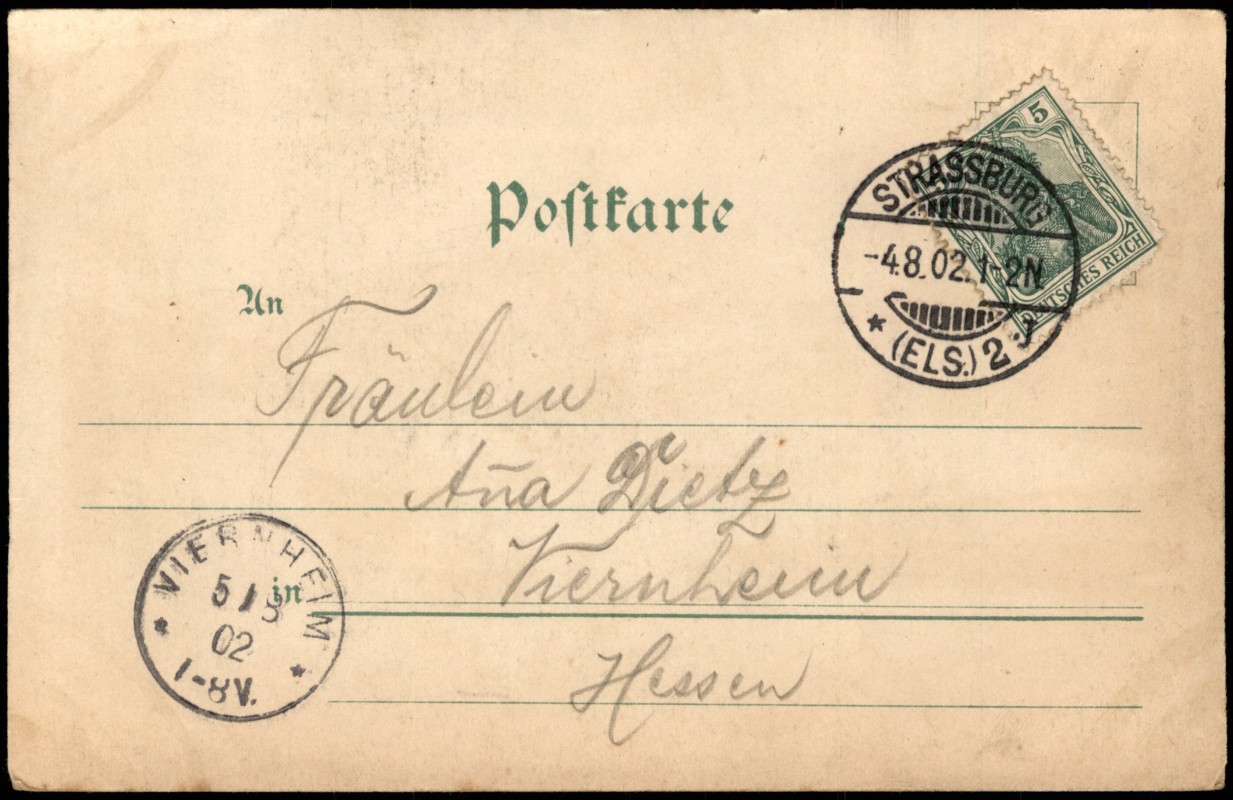 5
DEUTSCHES REICH
STRASSBURG
-4.8.02.1-2N
* (ELS.) 2 J
Postkarte
An
Fräulein
Aña Dietz
in Viernheim
Hessen
VIERNHEIM
5/8
02
1-8V.